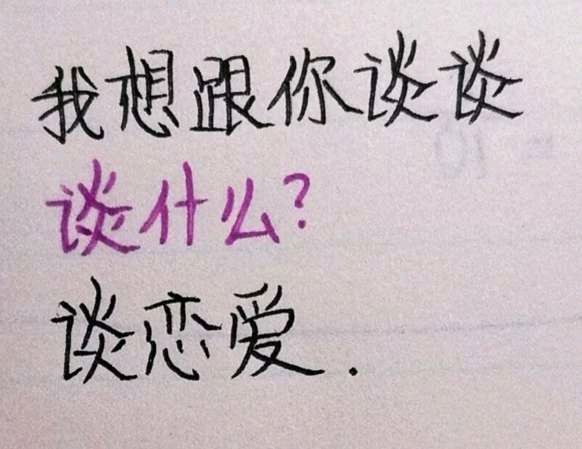 我想跟你谈谈
谈什么?
谈恋爱.